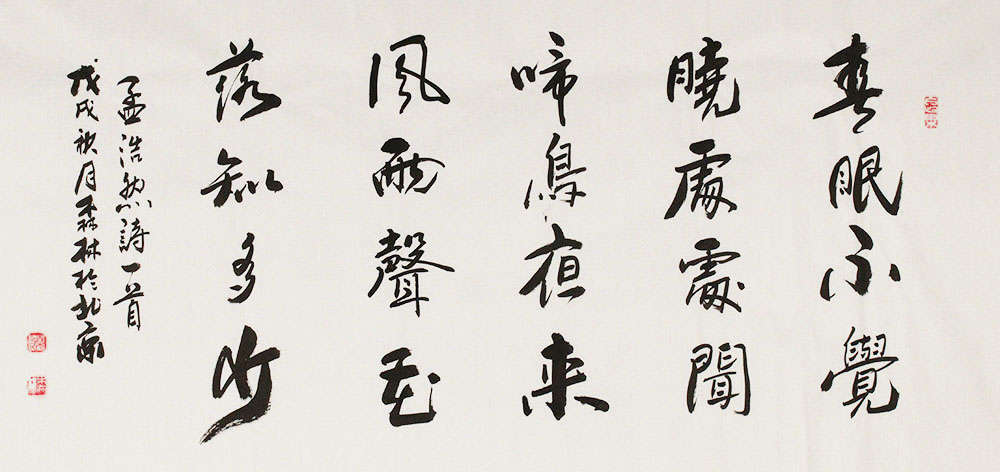 春眠不覺
曉處處聞
啼鳥夜来
風雨聲花
落知多少
孟浩然詩一首
戊戌秋月森林於北